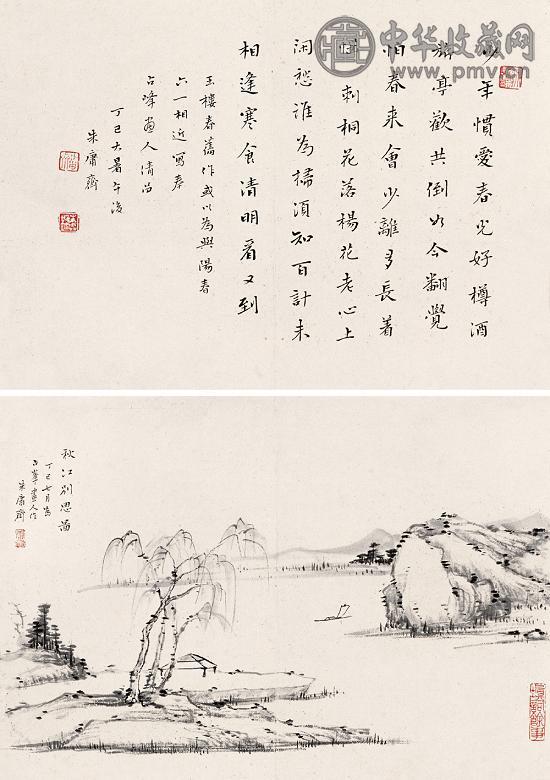 中华收藏网
www.pmv.cn
少年慣愛春光好樽酒
旗亭歡共倒如今翻覺
怕春来會少離多長着
惱 刺桐花落楊花老心上
閑愁誰為掃須知百計未
相逢寒食清明看又到
玉樓春舊作或以為與陽春
六一相近寫奉
畫人清
丁巳大暑午後
朱庸齋
秋江別思圖
丁巳七月為
畫人作
朱庸齋